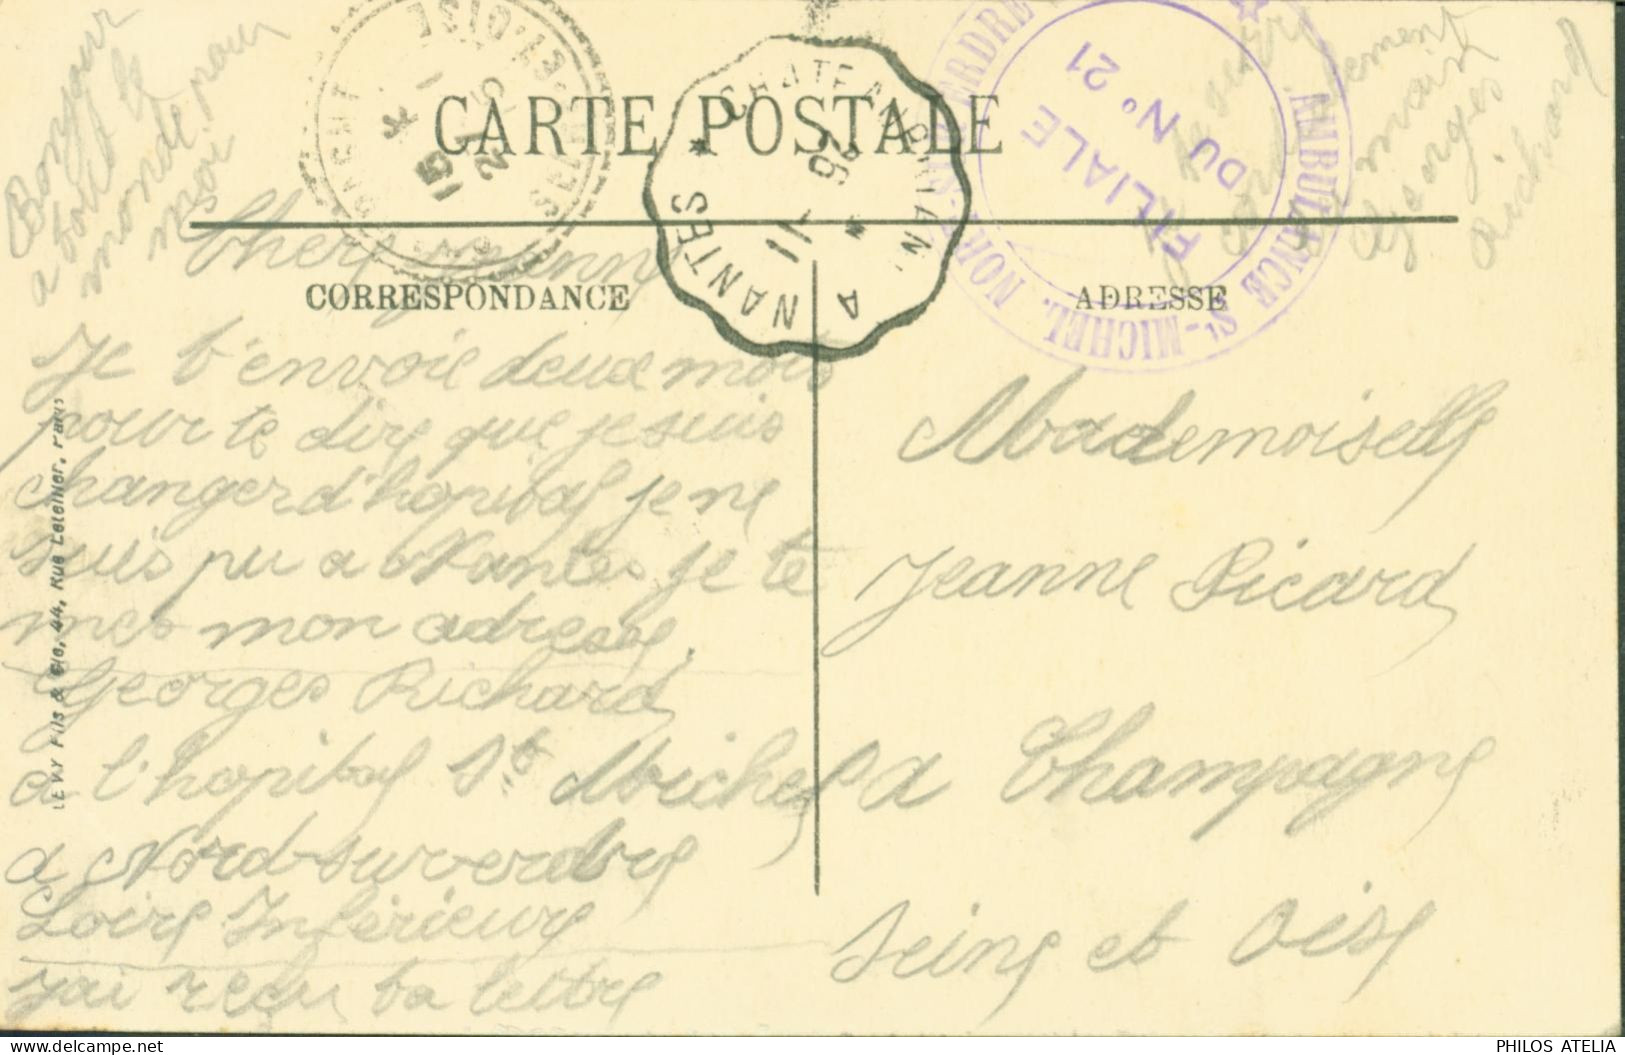 Bonjour
a tout le
monde pour
moi
CARTE POSTALE
CORRESPONDANCE
ADRESSE
CHATEAUBRIANT A NANTES
26 -11
SEINE-ET-OISE
15 -1
AMBULANCE St-MICHEL. NORT-SUR-ERDRE
FILIALE
DU N° 21
Cher Jeanne
Je t'envoie deux mots
pour te dire que je suis
changer d'hopital je ne
suis pu a Nantes je te
mes mon adresse.
Georges Richard
a l'hopital St Michel
a Nord-sur-verdre
Loire Inférieure
j'ai reçu ta lettre
Georges
Richard
Mademoiselle
Jeanne Picard
a Champagne
Seine et Oise
LEVY Fils & Cie, 44, Rue Letellier, Paris
PHILOS ATELIA
www.delcampe.net